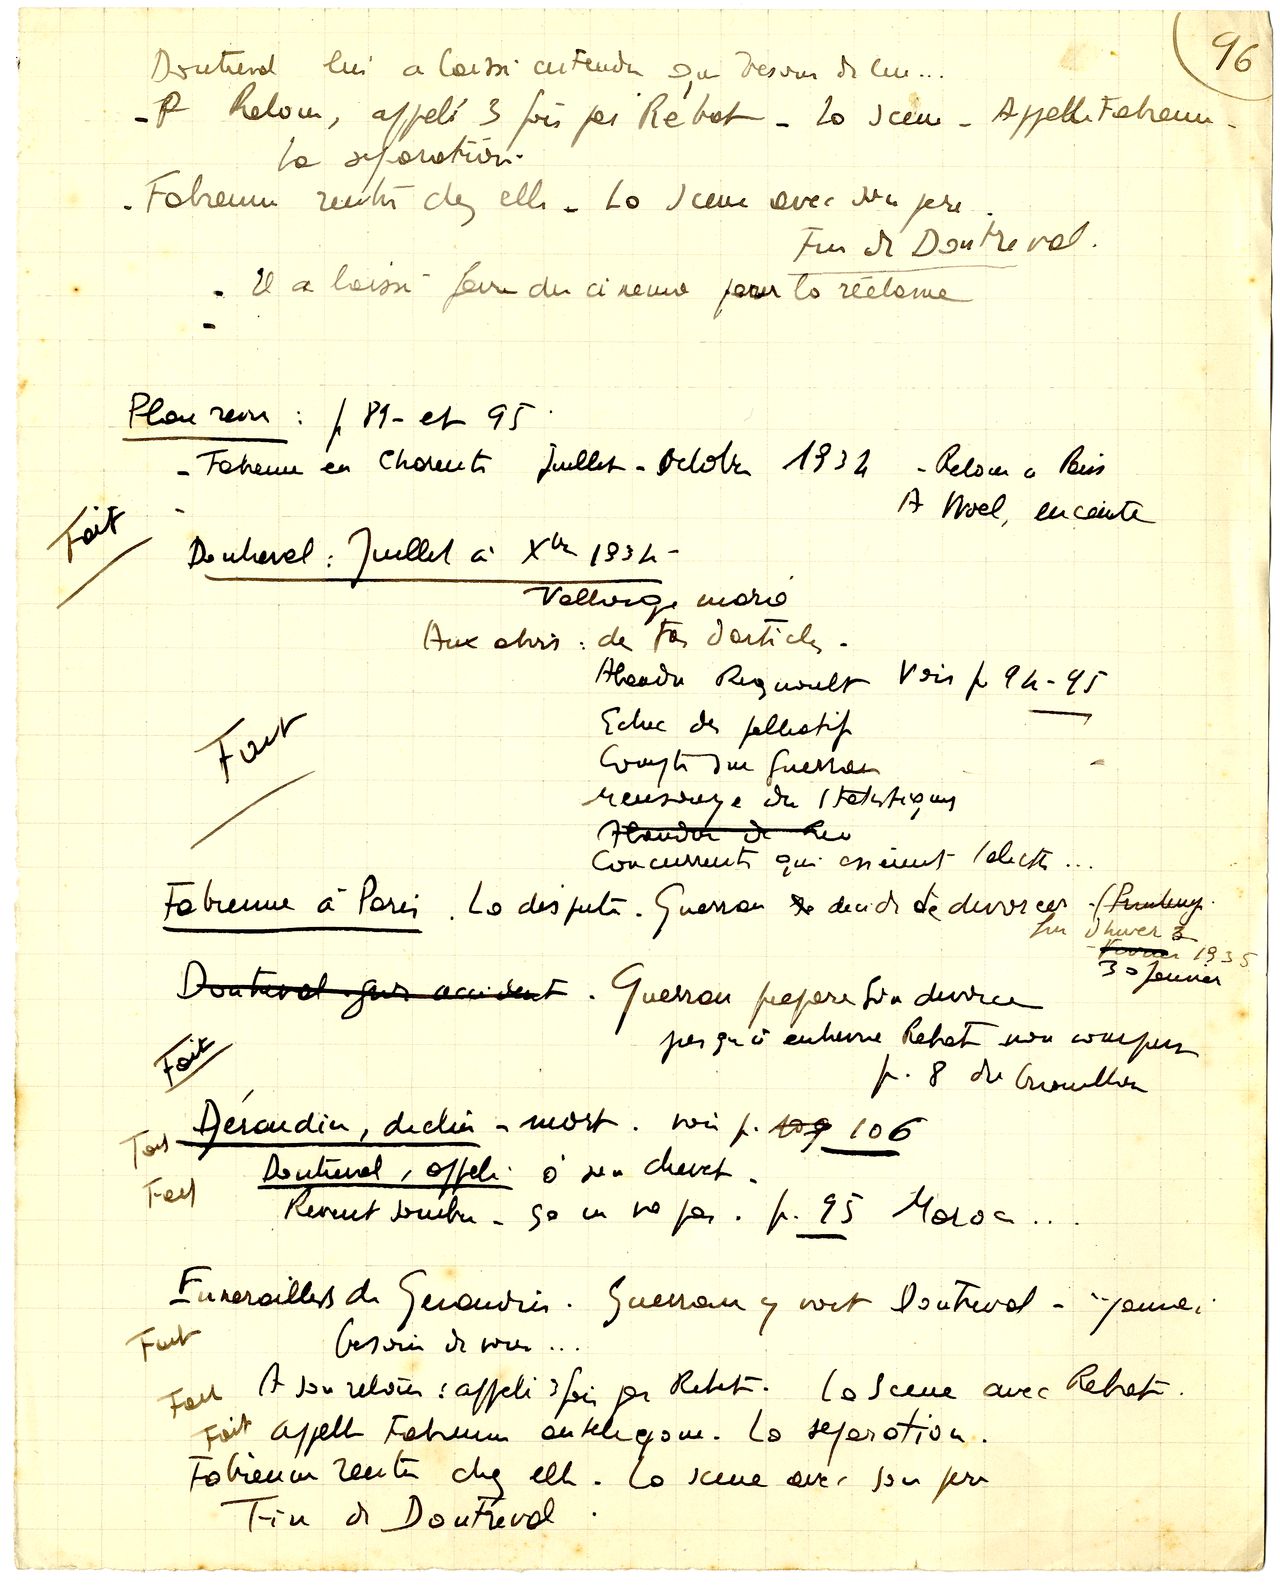 96
Doutreval lui a laissé entendre qu' besoin de lui...
- Retour, appelé 3 fois par Rebat - La scène - Appelle Fabienne -
La séparation.
- Fabienne rentre chez elle - La scène avec son père.
Fin de Doutreval.
- Il a laissé faire du cinéma pour la réclame
-
Plan revu : p 89 - et 95
- Fabienne en Charente Juillet - Octobre 1934 - Retour à Paris
A Noel, enceinte
Fait
Doutreval : Juillet à Xbre 1934 -
Vallorge marié
Aux abois : de d'articles -
Abandon Regnoult Voir p 94 - 95
Fait
Echec des palliatifs
Compte sur Guerran
Mensonge des statistiques
Abandon de
Concurrents qui essaient l'électr...
Fabienne à Paris. La dispute. Guerran se décide de divorcer - (Printemps.
fin d'hiver
Février 1935
30 Janvier
Doutreval accident. Guerran prépare son divorce
Rebat non
p. 8 du brouillon
Fait
Géraudin, déclin - mort. voir p. 109 106
Fait
Doutreval, appelé à son chevet.
Fait
Revient sombre - ça ne va pas. p. 95 Maroc...
Funérailles de Géraudin. Guerran y voit Doutreval - "jamais
Fait
besoin de vous...
Fait A son retour : appelé 3 fois par Rebat. La scène avec Rebat.
Fait appelle Fabienne au téléphone. La séparation.
Fabienne rentre chez elle. La scène avec son père
Fin de Doutreval.